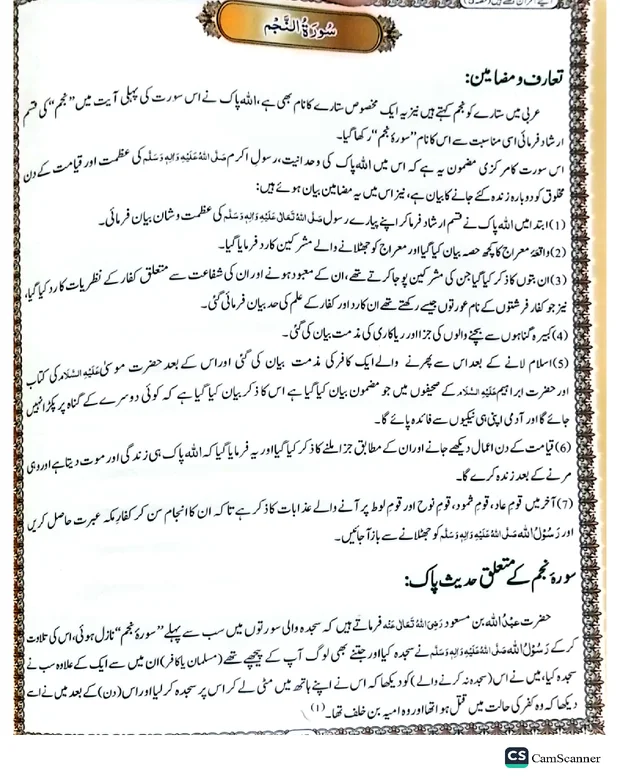 سُوْرَةُ النَّجْم
تعارف و مضامین:
عربی میں ستارے کو نجم کہتے ہیں نیز یہ ایک مخصوص ستارے کا نام بھی ہے، اللہ پاک نے اس سورت کی پہلی آیت میں ”نجم“ کی قسم
ارشاد فرمائی اسی مناسبت سے اس کا نام ”سورۂ نجم“ رکھا گیا۔
اس سورت کا مرکزی مضمون یہ ہے کہ اس میں اللہ پاک کی وحدانیت، رسولِ اکرم صَلَّی اللہُ عَلَیْہِ وَاٰلِہٖ وَسَلَّم کی عظمت اور قیامت کے دن
مخلوق کو دوبارہ زندہ کئے جانے کا بیان ہے، نیز اس میں یہ مضامین بیان ہوئے ہیں:
(1) ابتدا میں اللہ پاک نے قسم ارشاد فرما کر اپنے پیارے رسول صَلَّی اللہُ تَعَالٰی عَلَیْہِ وَاٰلِہٖ وَسَلَّم کی عظمت و شان بیان فرمائی۔
(2) واقعۂ معراج کا کچھ حصہ بیان کیا گیا اور معراج کو جھٹلانے والے مشرکین کا رد فرمایا گیا۔
(3) ان بتوں کا ذکر کیا گیا جن کی مشرکین پوجا کرتے تھے، ان کے معبود ہونے اور ان کی شفاعت سے متعلق کفار کے نظریات کا رد کیا گیا،
نیز جو کفار فرشتوں کے نام عورتوں جیسے رکھتے تھے ان کا رد اور کفار کے علم کی حد بیان فرمائی گئی۔
(4) کبیرہ گناہوں سے بچنے والوں کی جزا اور ریاکاری کی مذمت بیان کی گئی۔
(5) اسلام لانے کے بعد اس سے پھرنے والے ایک کافر کی مذمت بیان کی گئی اور اس کے بعد حضرت موسیٰ عَلَیْہِ السَّلَام کی کتاب
اور حضرت ابراہیم عَلَیْہِ السَّلَام کے صحیفوں میں جو مضمون بیان کیا گیا ہے اس کا ذکر بیان کیا گیا ہے کہ کوئی دوسرے کے گناہ پر پکڑا نہیں
جائے گا اور آدمی اپنی ہی نیکیوں سے فائدہ پائے گا۔
(6) قیامت کے دن اعمال دیکھے جانے اور ان کے مطابق جزا ملنے کا ذکر کیا گیا اور یہ فرمایا گیا کہ اللہ پاک ہی زندگی اور موت دیتا ہے اور وہی
مرنے کے بعد زندہ کرے گا۔
(7) آخر میں قومِ عاد، قومِ ثمود، قومِ نوح اور قومِ لوط پر آنے والے عذابات کا ذکر ہے تاکہ ان کا انجام سن کر کفارِ مکہ عبرت حاصل کریں
اور رَسُوْلُ اللہ صَلَّی اللہُ عَلَیْہِ وَاٰلِہٖ وَسَلَّم کو جھٹلانے سے باز آ جائیں۔
سورۂ نجم کے متعلق حدیث پاک:
حضرت عَبْدُ اللہ بن مسعود رَضِیَ اللہُ تَعَالٰی عَنْہ فرماتے ہیں کہ سجدہ والی سورتوں میں سب سے پہلے ”سورۂ نجم“ نازل ہوئی، اس کی تلاوت
کر کے رَسُوْلُ اللہ صَلَّی اللہُ عَلَیْہِ وَاٰلِہٖ وَسَلَّم نے سجدہ کیا اور جتنے بھی لوگ آپ کے پیچھے تھے (مسلمان یا کافر) ان میں سے ایک کے علاوہ سب نے
سجدہ کیا، میں نے اس (سجدہ نہ کرنے والے) کو دیکھا کہ اس نے اپنے ہاتھ میں مٹی لے کر اس پر سجدہ کر لیا اور اس (دن) کے بعد میں نے اسے
دیکھا کہ وہ کفر کی حالت میں قتل ہوا تھا اور وہ امیہ بن خلف تھا۔ (1)
CS CamScanner